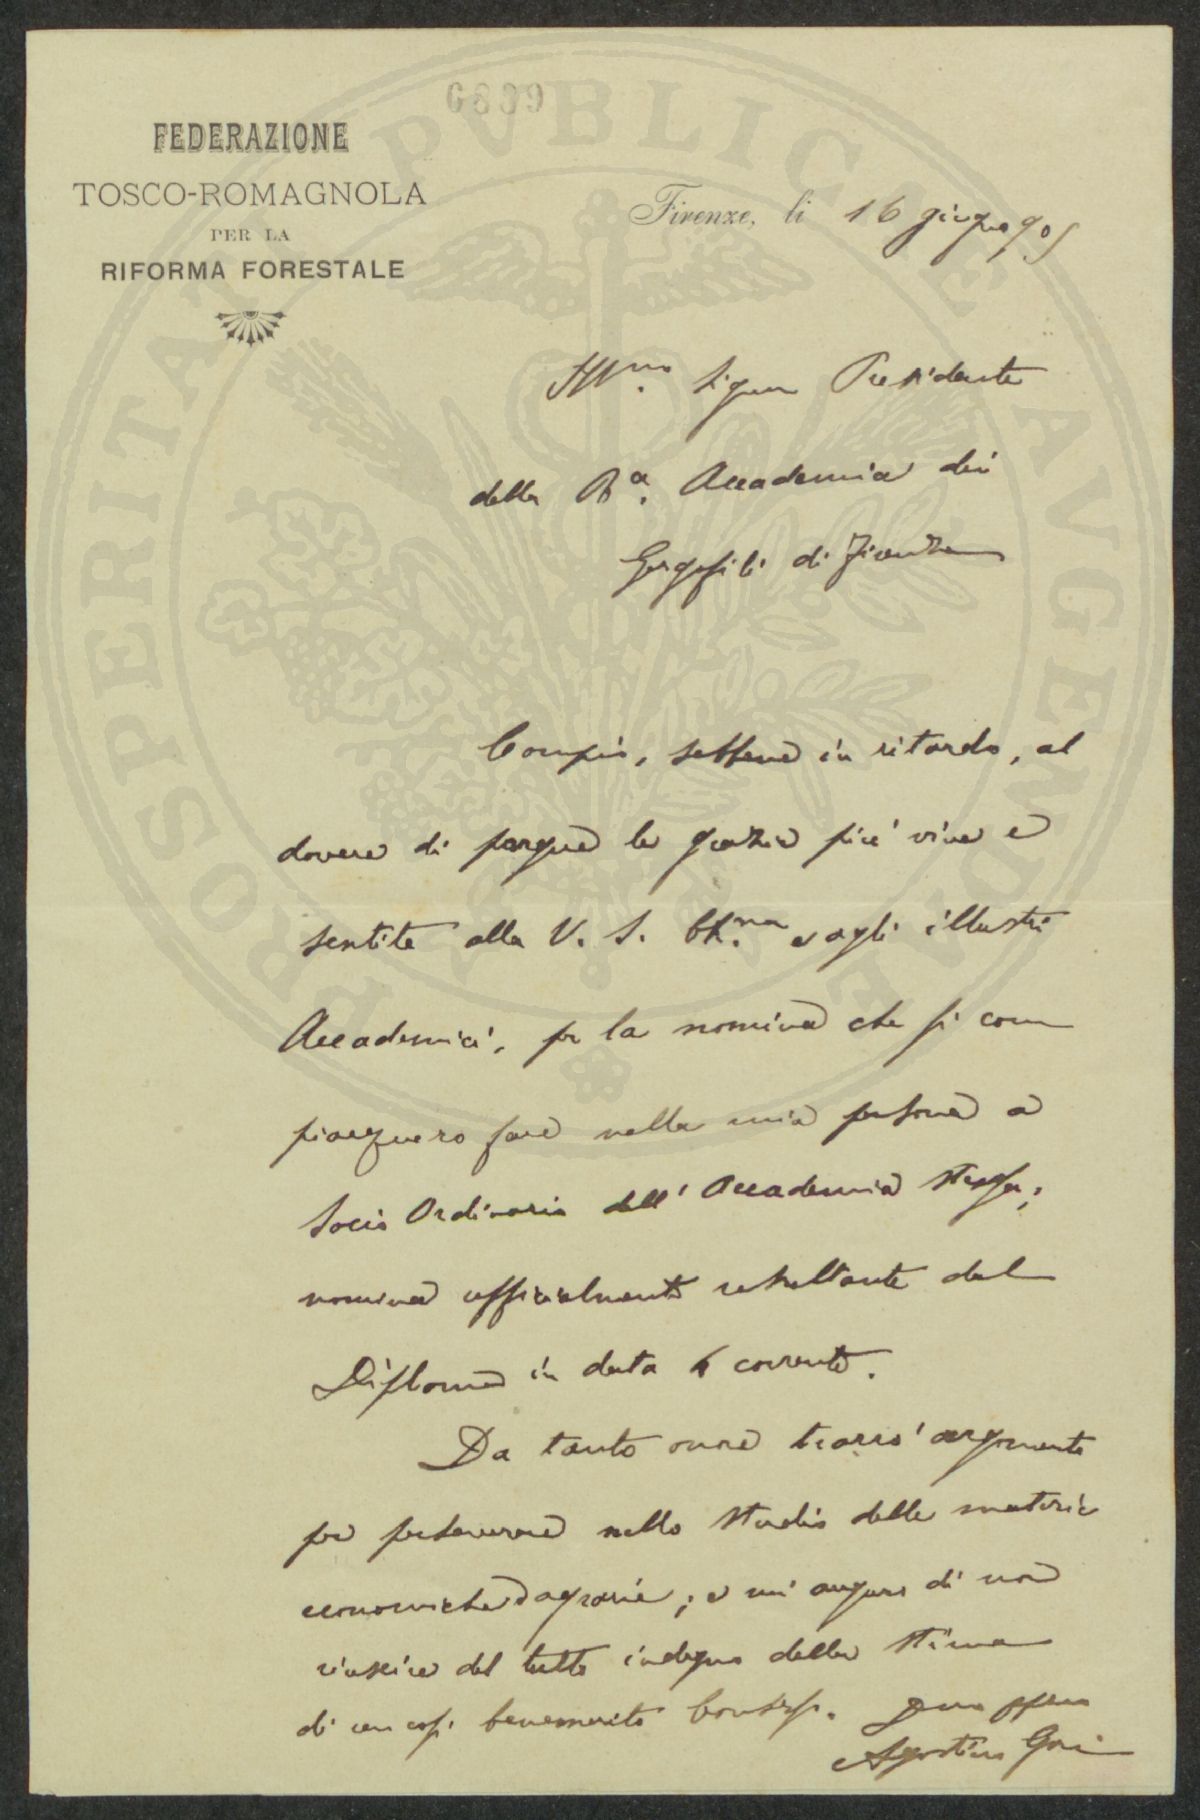 6839
FEDERAZIONE
TOSCO-ROMAGNOLA
PER LA
RIFORMA FORESTALE
Firenze, li 16 giugno 905
Ill.mo Signor Presidente
della R.a Accademia dei
Georgofili di Firenze
Compio, sebbene in ritardo, al
dovere di porgere le grazie più vive e
sentite alla V. S. Ch.ma e agli illustri
Accademici, per la nomina che si com
piacquero fare nella mia persona a
Socio Ordinario dell'Accademia stessa;
nomina ufficialmente resultante dal
Diploma in data 6 corrente.
Da tanto onore trarrò argomento
per perseverare nello studio delle materie
economiche ed agrarie; e mi auguro di non
riuscire del tutto indegno della stima
di un così benemerito Consesso. Suo
Agostino Gori
PROSPERITATI PVBLICAE AVGENDAE